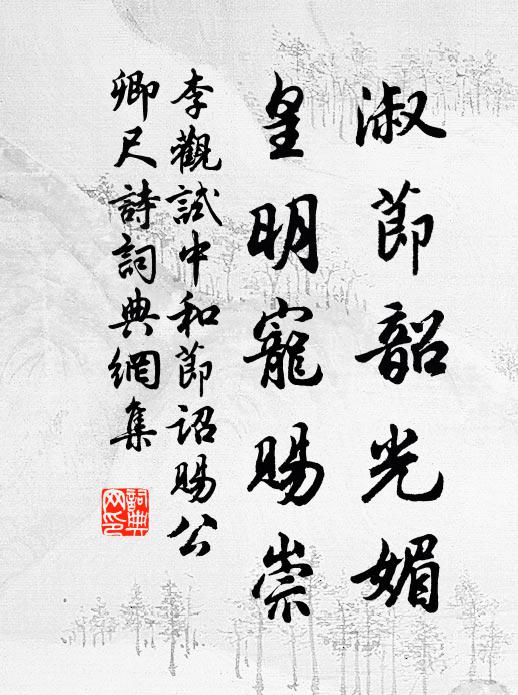 淑節韶光媚
皇明寵賜崇
李觀試中和節詔賜公
卿尺詩詞典網集
詞典網印